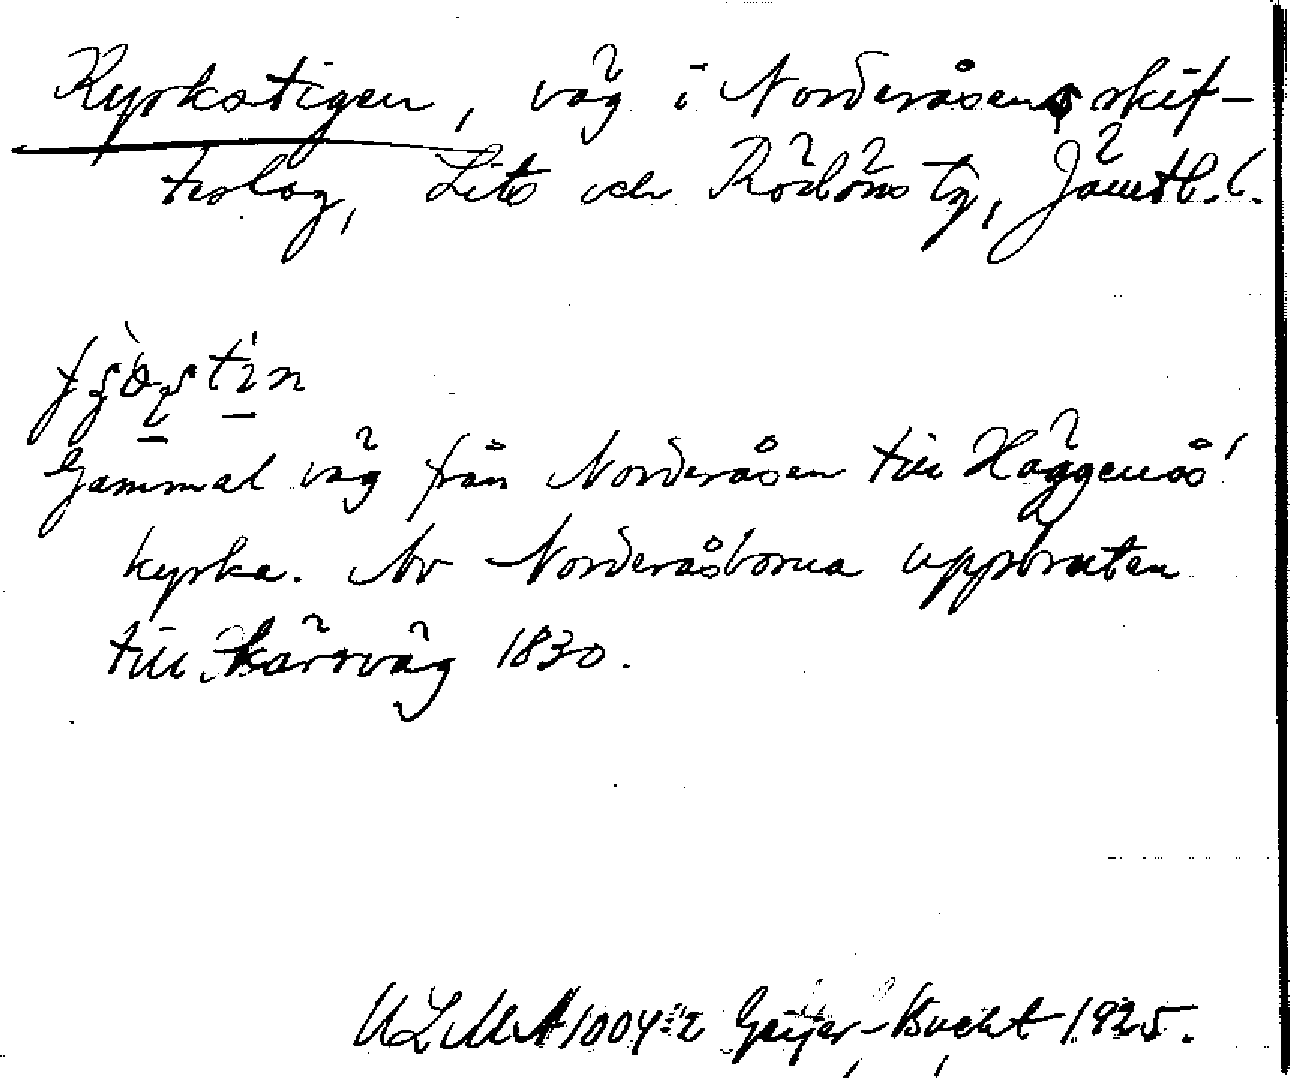 Kyrkstigen, väg i Norderåsens skif-
teslag, Lits och Rödöns tg, Jämtl. l.
Gammal väg från Norderåsen till Häggenås'
kyrka. Av Norderåsborna uppbruten
till kärrväg 1830.
ULMA 1004:2 Geijer-Bucht 1925.